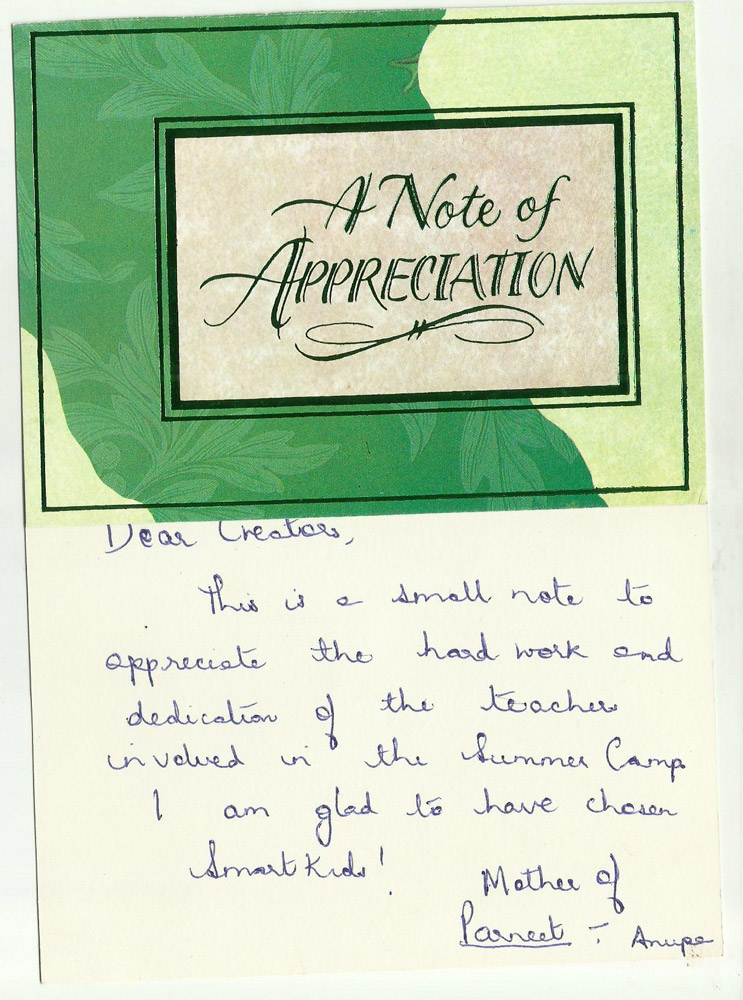 A Note of
APPRECIATION
Dear Creators,
This is a small note to
appreciate the hard work and
dedication of the teachers
involved in the Summer Camp
I am glad to have chosen
Smart Kids!
Mother of
Parneet - Anupa